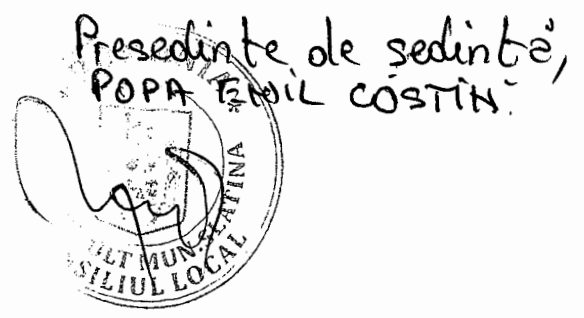 Presedinte de sedintă,
POPA EMIL COSTIN.
ULT MUN. SLATINA
SILIUL LOCAL